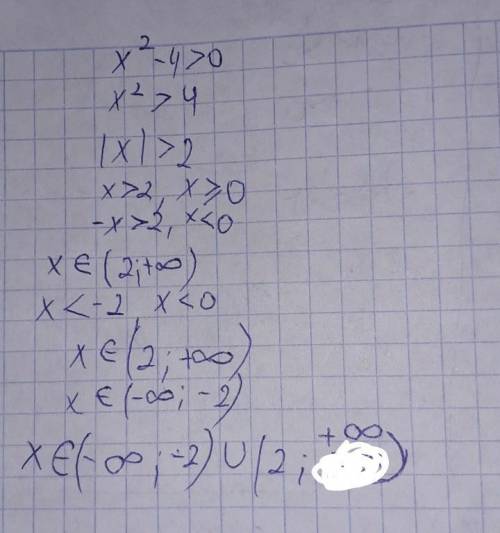 x² - 4 > 0
x² > 4
|x| > 2
x > 2, x ≥ 0
-x > 2, x < 0
x ∈ (2; +∞)
x < -2 x < 0
x ∈ (2; +∞)
x ∈ (-∞; -2)
x ∈ (-∞; -2) ∪ (2; +∞)